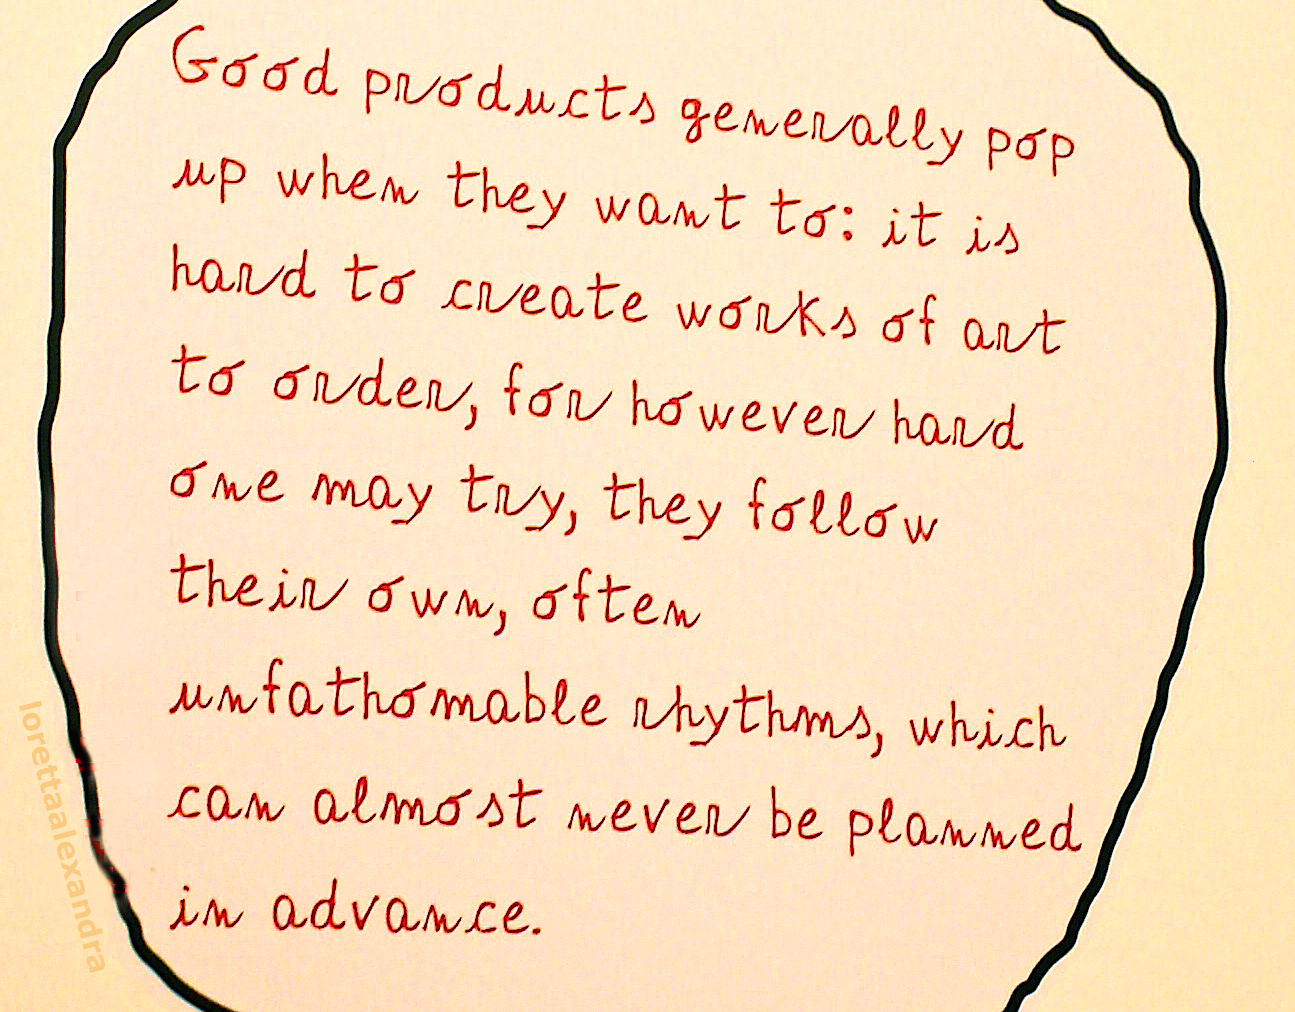 Good products generally pop
up when they want to: it is
hard to create works of art
to order, for however hard
one may try, they follow
their own, often
unfathomable rhythms, which
can almost never be planned
in advance.
lorettaalexandra